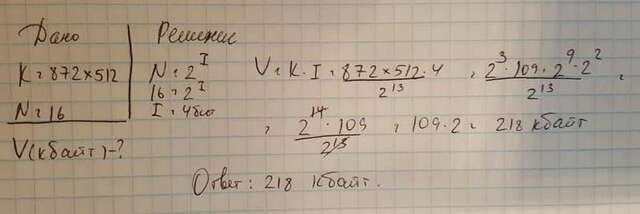 Дано
K = 872×512
N = 16
V(кбайт) - ?
Решение
N = 2^I
16 = 2^I
I = 4бит
V = K · I = 872×512·4 / 2^13 = 2^3 · 109 · 2^9 · 2^2 / 2^13 =
= 2^14 · 109 / 2^13 = 109 · 2 = 218 кбайт
Ответ: 218 кбайт.